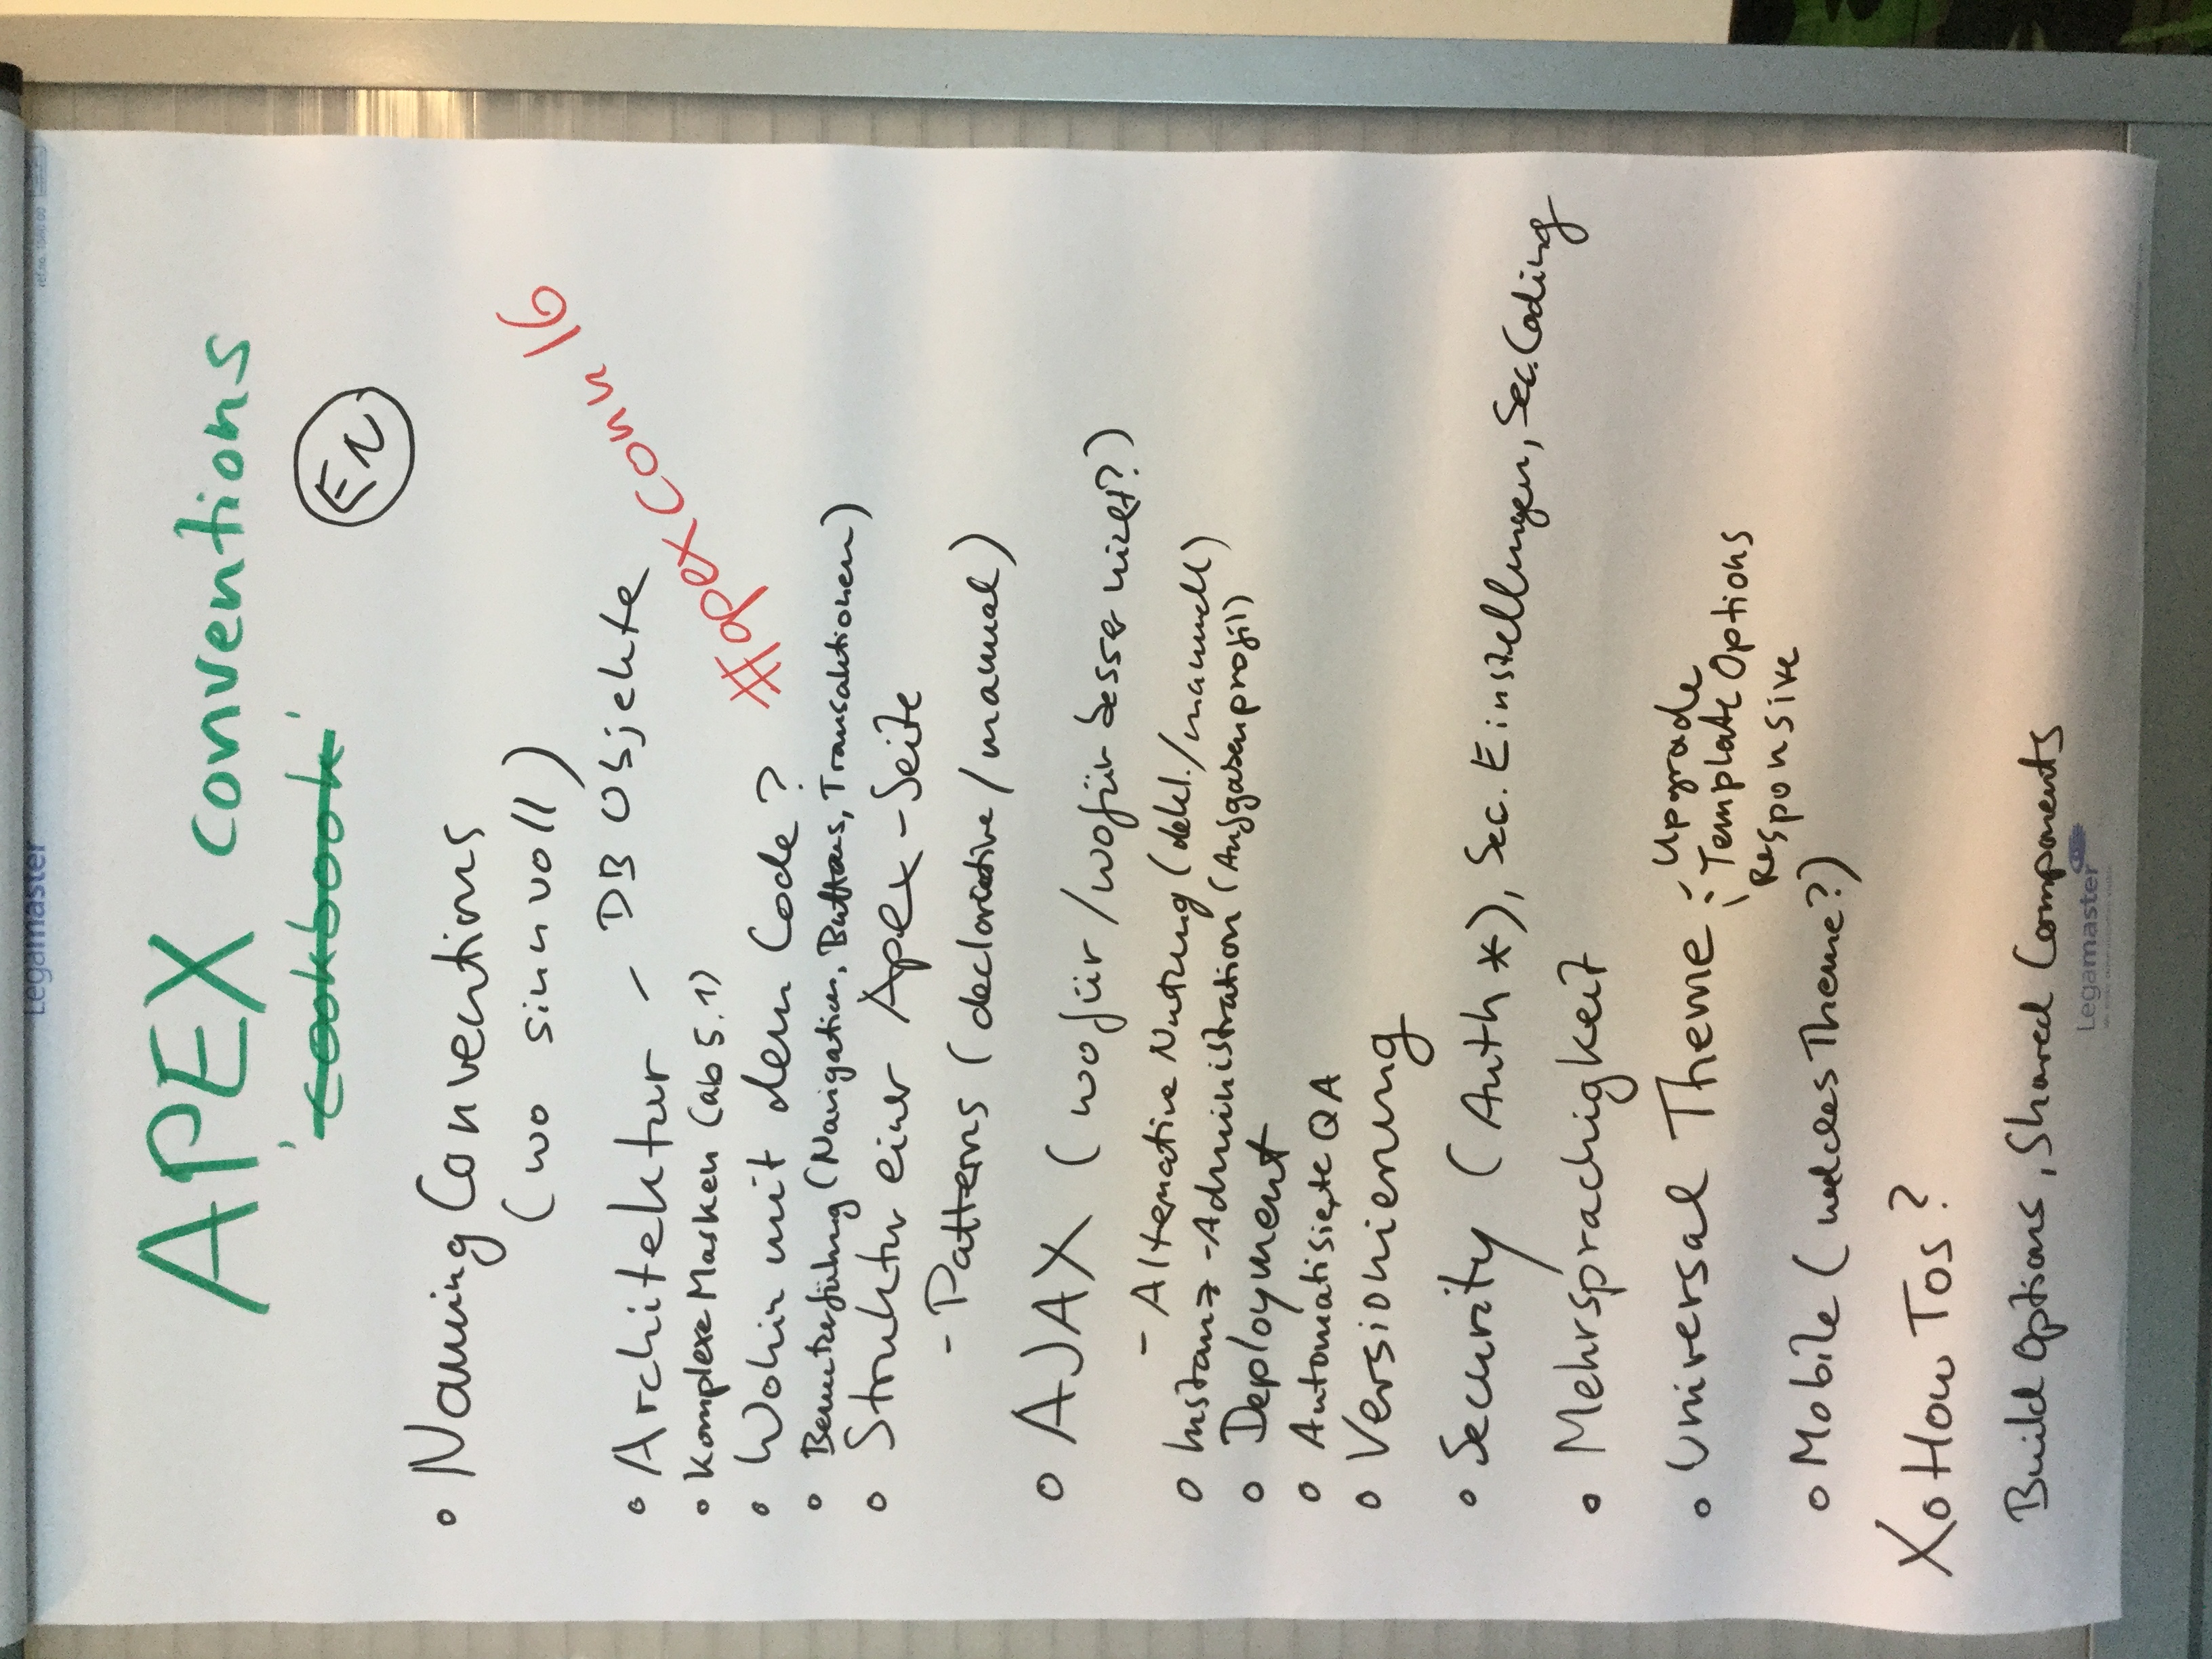 Legamaster
APEX conventions
'cookbook'
EN
• Naming Conventions
(wo sinnvoll)
• Architektur – DB Objekte
#apexconn16
• Komplexe Masken (ab 5.1)
• Wohin mit dem Code?
• Benutzerführung (Navigation, Buttons, Transaktionen)
• Struktur einer Apex-Seite
- Patterns (declarative/manual)
• AJAX (wofür/wofür besser nicht?)
- Alternative Nutzung (dekl./manuell)
• Instanz-Administration (Aufgabenprofil)
• Deployment
• Automatisierte QA
• Versionierung
• Security (Auth*), Sec. Einstellungen, Sec. Coding
• Mehrsprachigkeit
• Universal Theme - Upgrade
- Template Options
\ Responsive
• Mobile (welches Theme?)
X • How Tos?
Build Options, Shared Components
Legamaster